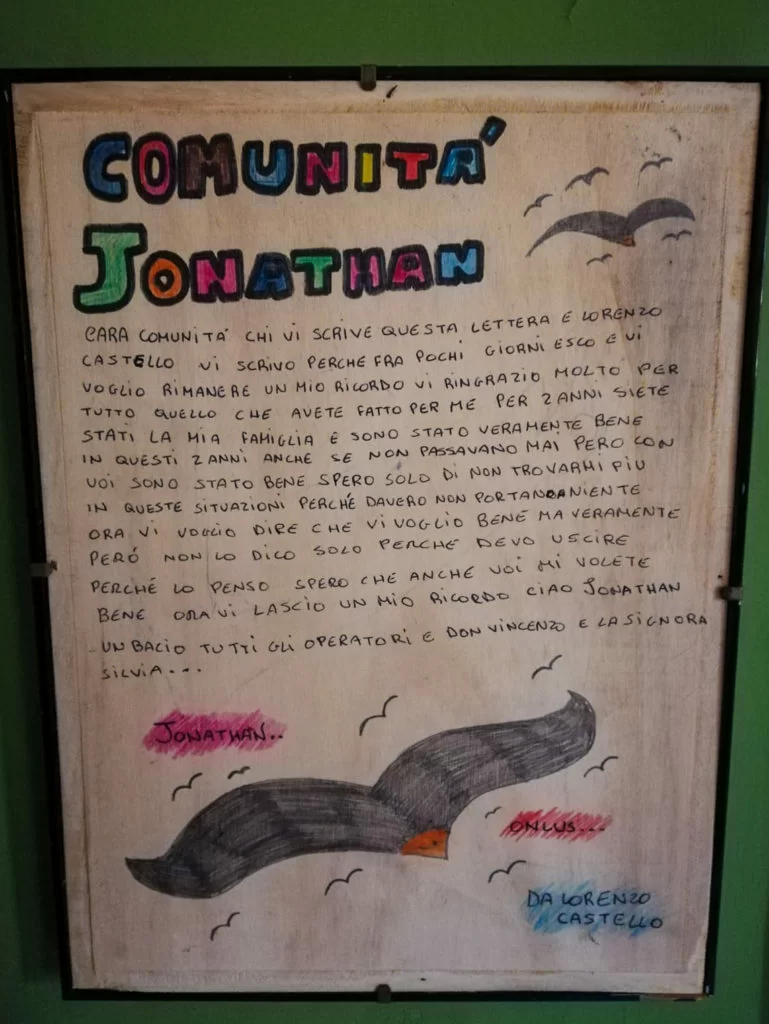 COMUNITA'
JONATHAN
CARA COMUNITA' CHI VI SCRIVE QUESTA LETTERA E LORENZO
CASTELLO VI SCRIVO PERCHE FRA POCHI GIORNI ESCO E VI
VOGLIO RIMANERE UN MIO RICORDO VI RINGRAZIO MOLTO PER
TUTTO QUELLO CHE AVETE FATTO PER ME PER 2 ANNI SIETE
STATI LA MIA FAMIGLIA E SONO STATO VERAMENTE BENE
IN QUESTI 2 ANNI ANCHE SE NON PASSAVANO MAI PERO CON
VOI SONO STATO BENE SPERO SOLO DI NON TROVARMI PIU
IN QUESTE SITUAZIONI PERCHÉ DAVERO NON PORTANOANIENTE
ORA VI VOGLIO DIRE CHE VI VOGLIO BENE MA VERAMENTE
PERÓ NON LO DICO SOLO PERCHE DEVO USCIRE
PERCHÉ LO PENSO SPERO CHE ANCHE VOI MI VOLETE
BENE ORA VI LASCIO UN MIO RICORDO CIAO JONATHAN
UN BACIO TUTTI GLI OPERATORI E DON VINCENZO E LA SIGNORA
SILVIA...
JONATHAN..
ONLUS...
DA LORENZO
CASTELLO